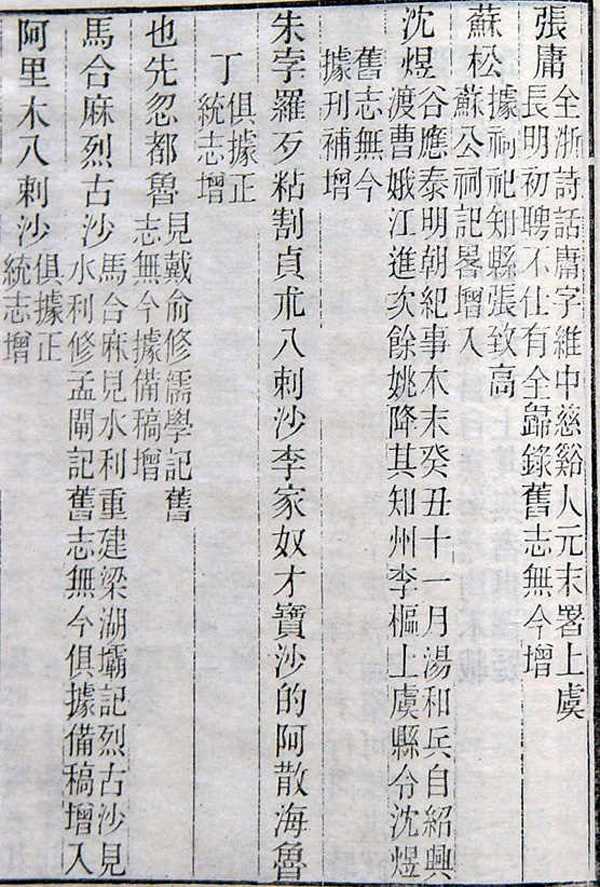 張庸
全浙詩話庸字維中慈谿人元末署上虞
長明初聘不仕有全歸錄舊志無今增
蘇松
據祠祀知縣張致高
蘇公祠記畧增入
沈煜
谷應泰明朝紀事本末癸丑十一月湯和兵自紹興
渡曹娥江進次餘姚降其知州李樞上虞縣令沈煜
舊志無今
據刊補增
朱孛羅歹粘割貞朮八剌沙李家奴才寶沙的阿散海魯
丁
俱據正
統志增
也先忽都魯
見戴俞修儒學記舊
志無今據備稿增
馬合麻烈古沙
馬合麻見水利重建梁湖壩記烈古沙見
水利修孟閘記舊志無今俱據備稿增入
阿里木八剌沙
俱據正
統志增